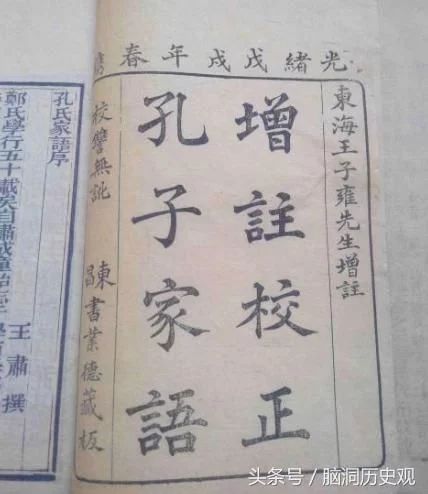 光緒戊戌年春
東海王子雍先生增註
增註校正
孔子家語
校讐無訛
東昌書業德藏板
孔氏家語序
王肅撰
鄭氏學行五十載矣自肅成童始
头条号 / 脑洞历史观